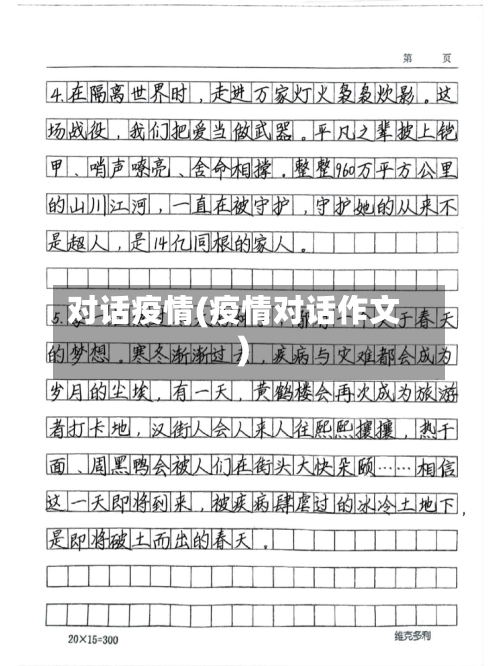 第 页
4.在隔离世界时，走进万家灯火袅袅炊影。这
场战役，我们把爱当做武器。平凡之辈披上铠
甲、哨声嘹亮、舍命相撑。整整960万平方公里
的山川江河，一直在被守护，守护她的从来不
是超人，是14亿同根的家人。
对话疫情(疫情对话作文
)
5.于春天
的梦想。寒冬渐渐过去，疾病与灾难都会成为
岁月的尘埃，有一天，黄鹤楼会再次成为旅游
者打卡地，汉街人会人来人往熙熙攘攘，热干
面、周黑鸭会被人们在街头大快朵颐……相信
这一天即将到来，被疾病肆虐过的冰冷土地下，
是即将破土而出的春天。
20×15=300
维克多利